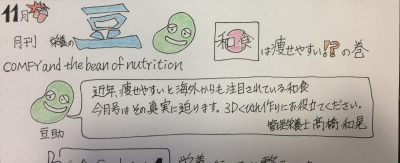 11月号
月刊 栄養の豆 和食は痩せやすい!?の巻
COMFY and the bean of nutrition
近年、痩せやすいと海外からも注目されている和食
今月号はその真実に迫ります。3Dくびれ作りにお役立てください。
管理栄養士 髙橋 和晃
豆助